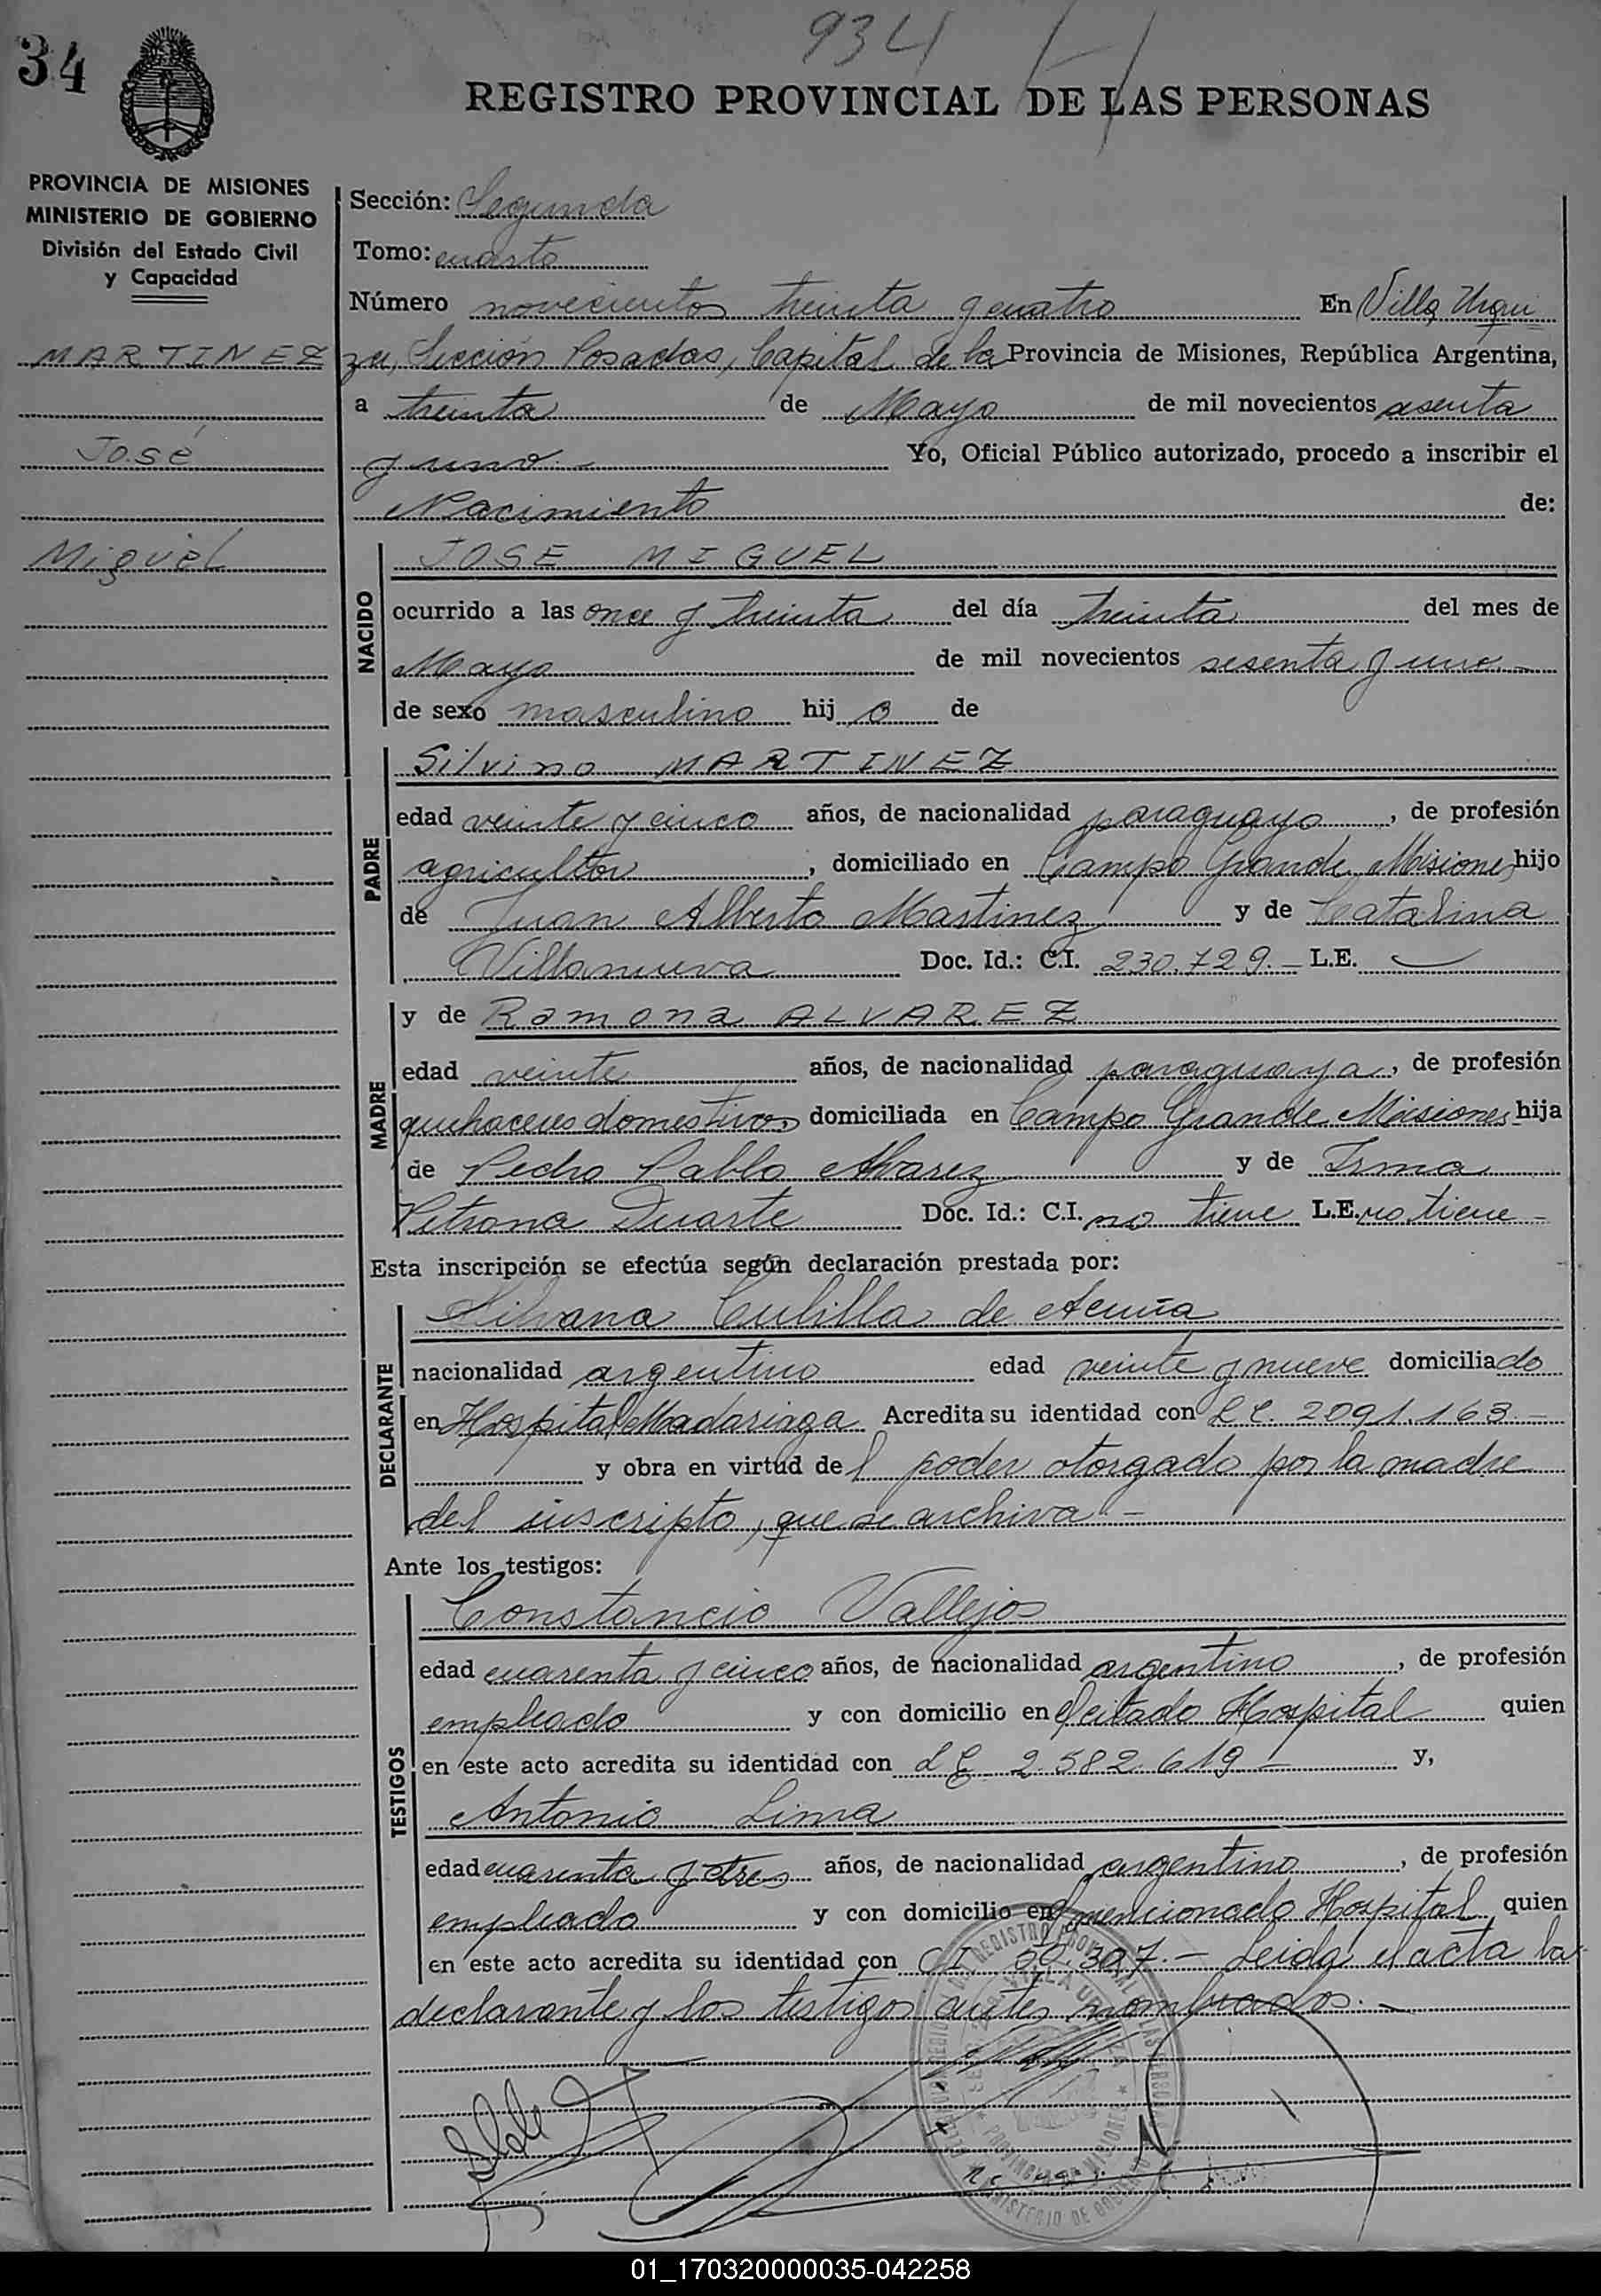 934
34
REGISTRO PROVINCIAL DE LAS PERSONAS
PROVINCIA DE MISIONES
MINISTERIO DE GOBIERNO
División del Estado Civil
y Capacidad
MARTINEZ
José
Miguel
Sección: Segunda
Tomo: cuarto
Número novecientos treinta y cuatro En Villa Urqui
za, Sección Posadas, Capital de la Provincia de Misiones, República Argentina,
a treinta de Mayo de mil novecientos sesenta
y uno.- Yo, Oficial Público autorizado, procedo a inscribir el
Nacimiento de:
NACIDO
JOSE MIGUEL
ocurrido a las once y treinta del día treinta del mes de
Mayo de mil novecientos sesenta y uno.-
de sexo masculino hijo de
PADRE
Silvino MARTINEZ
edad veinte y cinco años, de nacionalidad paraguayo, de profesión
agricultor, domiciliado en Campo Grande Misiones, hijo
de Juan Alberto Martinez y de Catalina
Villanueva Doc. Id.: C.I. 230.729.- L.E. —
MADRE
y de Ramona ALVAREZ
edad veinte años, de nacionalidad paraguaya, de profesión
quehaceres domesticos domiciliada en Campo Grande Misiones, hija
de Pedro Pablo Alvarez y de Irma
Petrona Duarte Doc. Id.: C.I. no tiene L.E. no tiene -
Esta inscripción se efectúa según declaración prestada por:
DECLARANTE
Silvana Cubilla de Acuña
nacionalidad argentino edad veinte y nueve domiciliado
en Hospital Madariaga Acredita su identidad con L C. 2091.163.-
y obra en virtud del poder otorgado por la madre
del inscripto, que se archiva -
Ante los testigos:
TESTIGOS
Constancio Vallejos
edad cuarenta y cinco años, de nacionalidad argentino, de profesión
empleado y con domicilio en el citado Hospital quien
en este acto acredita su identidad con L E 2.582.619 - y,
Antonio Lima
edad cuarenta y tres años, de nacionalidad argentino, de profesión
empleado y con domicilio en el mencionado Hospital, quien
en este acto acredita su identidad con C I 39.307.- Leida el acta la
declarante y los testigos antes nombrados.-
01_170320000035-042258